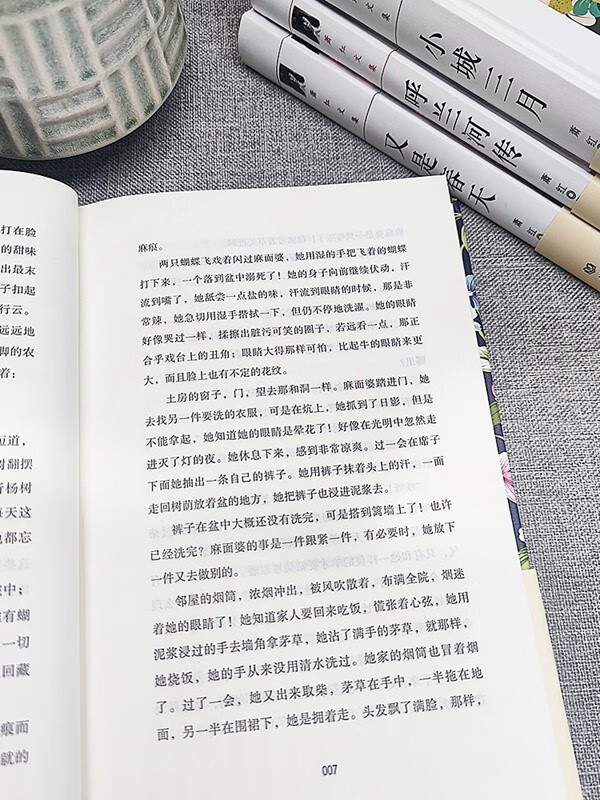 萧红文集
小城三月
萧红
萧红文集
呼兰河传
萧红
萧红文集
又是春天
萧红
打在脸
的甜味
出最末
子扣起
行云。
远远地
脚的农
着：
短道，
树翻摆
新杨树
每天这
也都忘
中；
有蝴
一切
回藏
痕而
就的
麻痕。
两只蝴蝶飞戏着闪过麻面婆，她用湿的手把飞着的蝴蝶
打下来，一个落到盆中溺死了！她的身子向前继续伏动，汗
流到嘴了，她舐尝一点盐的味，汗流到眼睛的时候，那是非
常辣，她急切用湿手揩拭一下，但仍不停地洗濯。她的眼睛
好像哭过一样，揉擦出脏污可笑的圈子，若远看一点，那正
合乎戏台上的丑角；眼睛大得那样可怕，比起牛的眼睛来更
大，而且脸上也有不定的花纹。
土房的窗子，门，望去那和洞一样。麻面婆踏进门，她
去找另一件要洗的衣服，可是在炕上，她抓到了日影，但是
不能拿起，她知道她的眼睛是晕花了！好像在光明中忽然走
进灭了灯的夜。她休息下来，感到非常凉爽。过一会在席子
下面她抽出一条自己的裤子。她用裤子抹着头上的汗，一面
走回树荫放着盆的地方，她把裤子也浸进泥浆去。
裤子在盆中大概还没有洗完，可是搭到篱墙上了！也许
已经洗完？麻面婆的事是一件跟紧一件，有必要时，她放下
一件又去做别的。
邻屋的烟筒，浓烟冲出，被风吹散着，布满全院，烟迷
着她的眼睛了！她知道家人要回来吃饭，慌张着心弦，她用
泥浆浸过的手去墙角拿茅草，她沾了满手的茅草，就那样，
她烧饭，她的手从来没用清水洗过。她家的烟筒也冒着烟
了。过了一会，她又出来取柴，茅草在手中，一半拖在地
面，另一半在围裙下，她是拥着走。头发飘了满脸，那样，
007